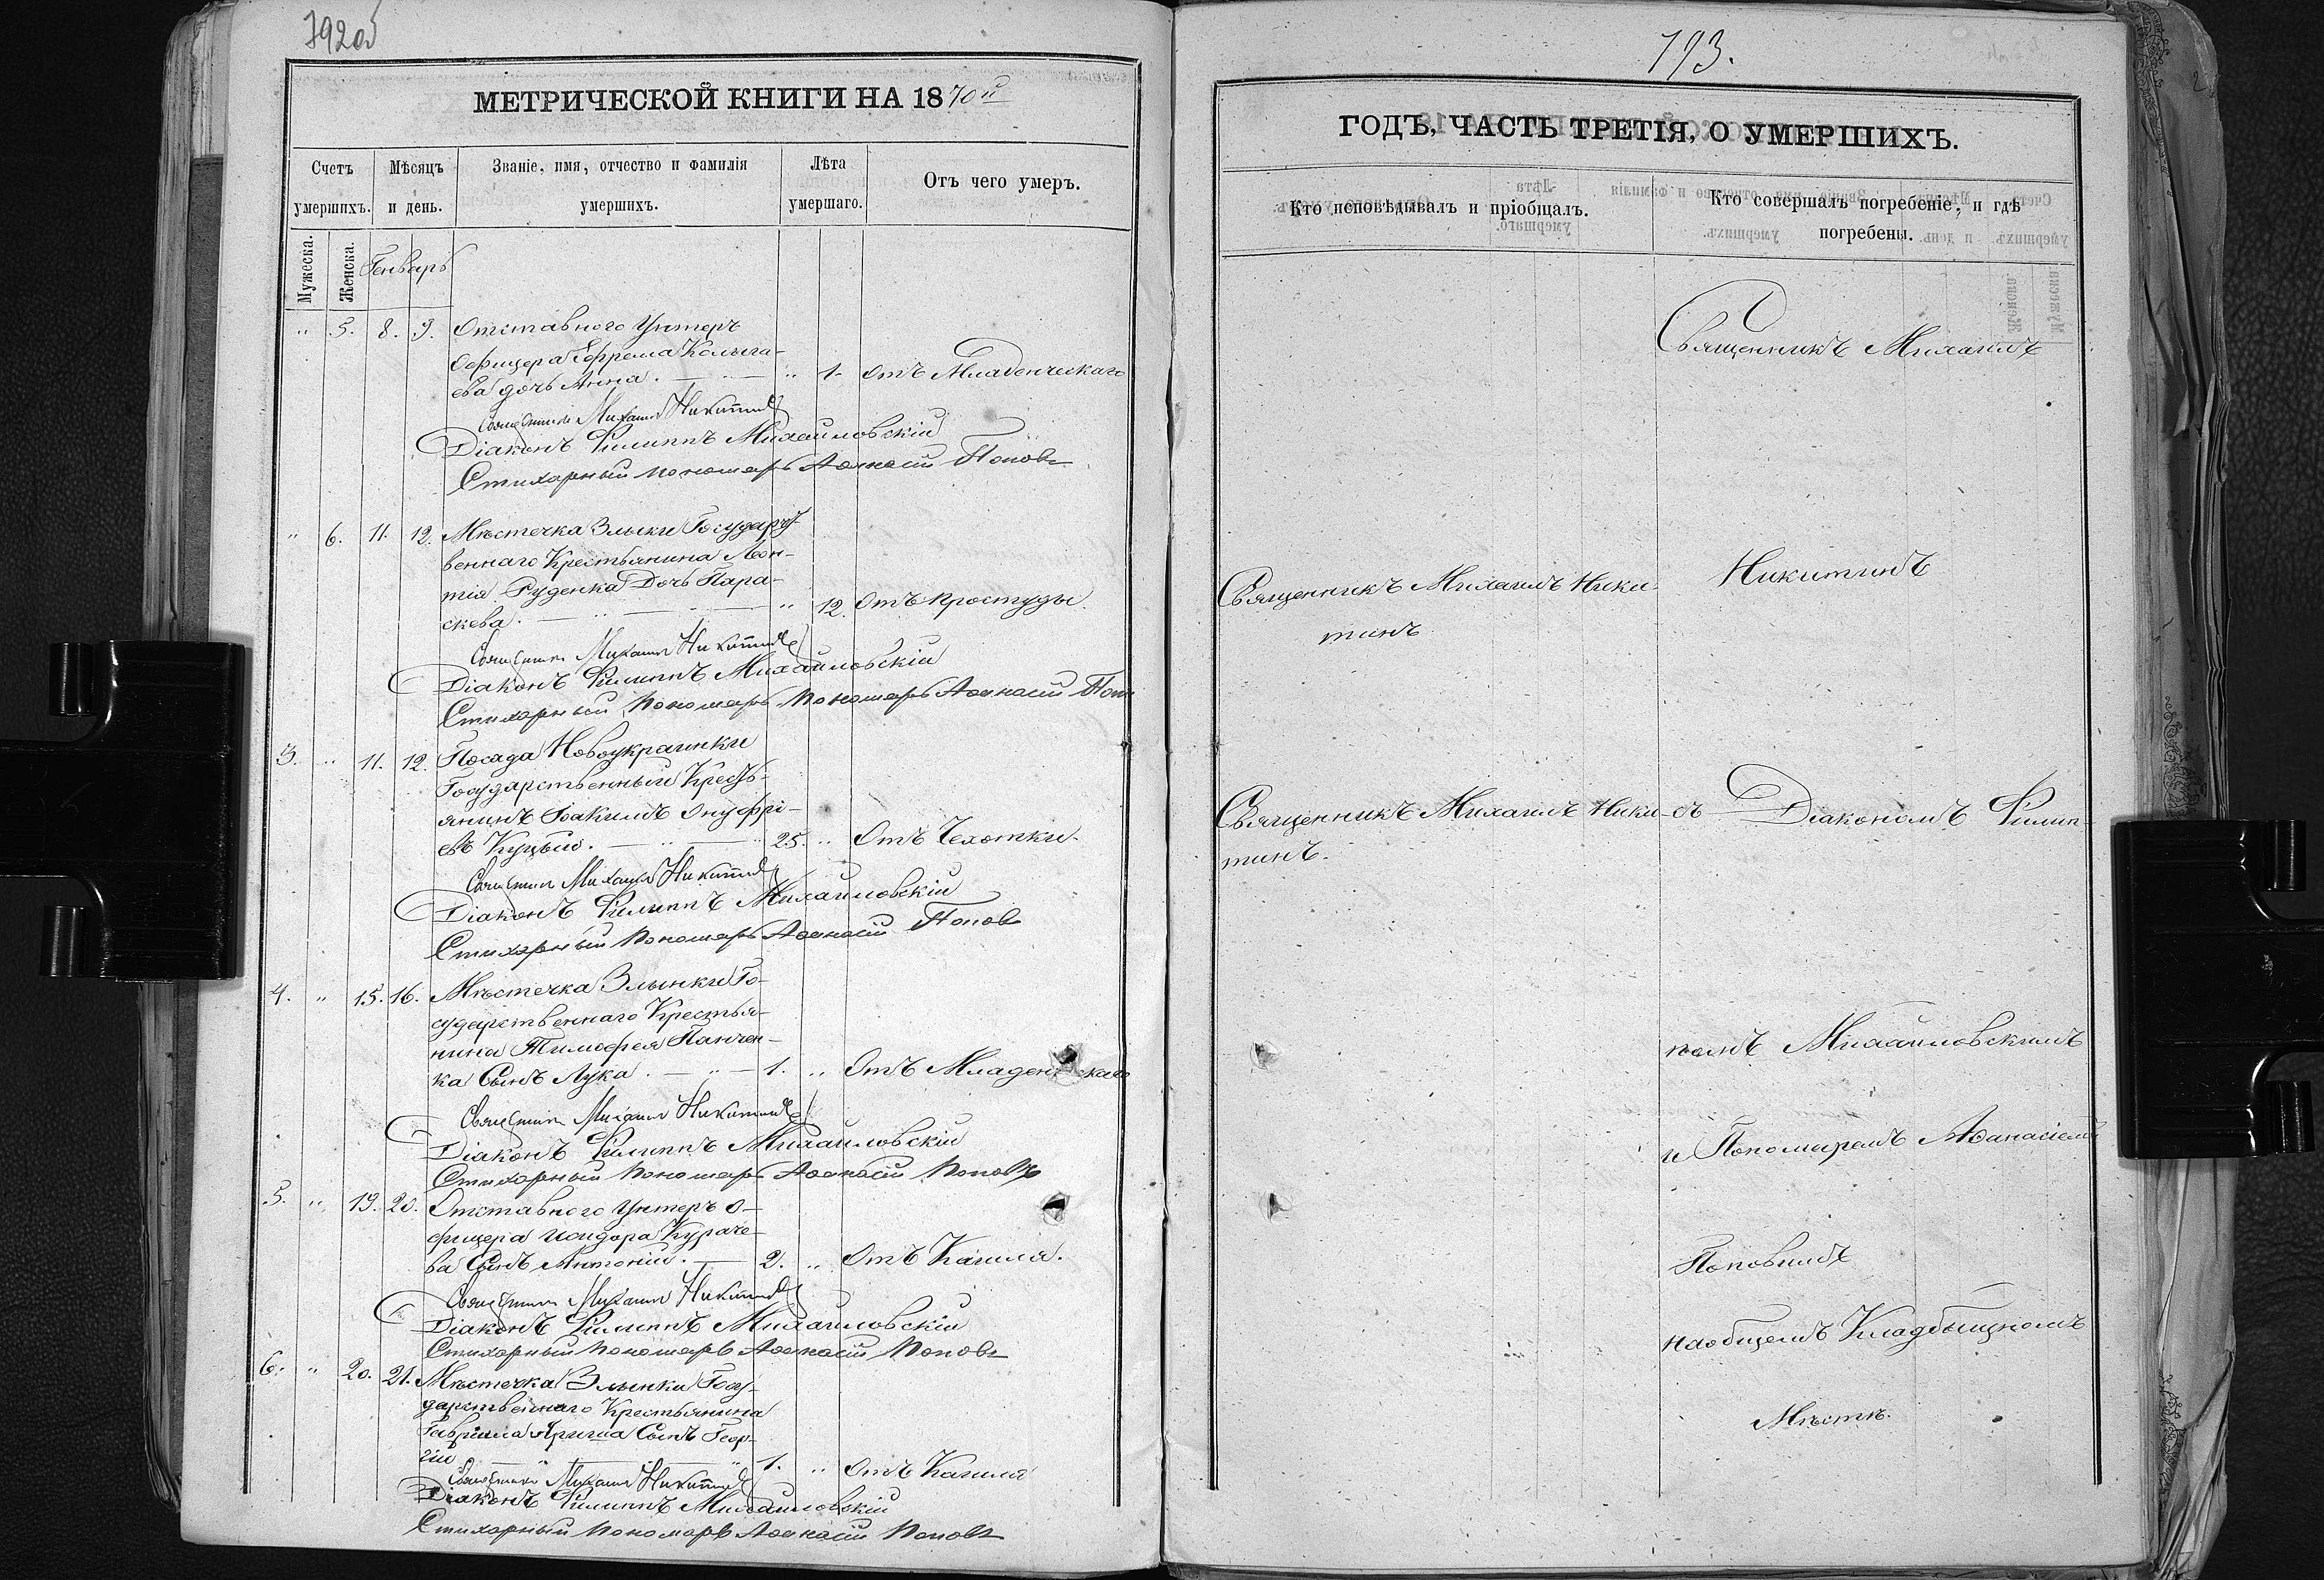 792об
МЕТРИЧЕСКОЙ КНИГИ НА 1870й
Счетъ умершихъ.
Мѣсяцъ и день.
Званіе, имя, отчество и фамилія умершихъ.
Лѣта умершаго.
Отъ чего умеръ.
Мужеска.
Женска.
Генварь
" 5. 8. 9. Отставного Унтеръ
Офицера Ефрема Колыга-
ева дочь Анна. — " — " 1. Отъ Младенческаго
Священникъ Михаилъ Никитинъ
Діаконъ Филиппъ Михайловскій
Стихарный Пономарь Аѳанасій Поповъ
" 6. 11. 12. Мѣстечка Злынки Государст-
веннаго Крестьянина Леон-
тія Руденка Дочь Пара-
скева. — " — " 12. Отъ простуды.
Священникъ Михаилъ Никитинъ
Діаконъ Филиппъ Михайловскій
Стихарный Пономарь Пономарь Аѳанасій Поп
3. " 11. 12. Посада Новоукраинки
Государственный Кресть-
янинъ Іоакимъ Онуфрі-
евъ Куцый. — " — " 25. " Отъ Чехотки.
Священникъ Михаилъ Никитинъ
Діаконъ Филиппъ Михайловскій
Стихарный Пономарь Аѳанасій Поповъ
4. " 15. 16. Мѣстечка Злынки Го-
сударственнаго Крестья-
нина Тимофея Панчен-
ка Сынъ Лука. — " — 1. " Отъ Младенческаго
Священникъ Михаилъ Никитинъ
Діаконъ Филиппъ Михайловскій
Стихарный Пономарь Аѳанасій Поповъ
5. " 19. 20. Отставного Унтеръ О-
фицера Исидора Кураче-
ва Сынъ Антоній. — 2. " Отъ Кашля.
Священникъ Михаилъ Никитинъ
Діаконъ Филиппъ Михайловскій
Стихарный Пономарь Аѳанасій Поповъ
6. " 20. 21. Мѣстечка Злынки Госу-
дарственнаго Крестьянина
Гавриила Сынъ Геор-
гій — " — " 1. " Отъ Кашля
Священникъ Михаилъ Никитинъ
Діаконъ Филиппъ Михайловскій
Стихарный Пономарь Аѳанасій Поповъ
793.
ГОДЪ, ЧАСТЬ ТРЕТІЯ, О УМЕРШИХЪ.
Кто исповѣдывалъ и пріобщалъ.
Кто совершалъ погребеніе, и гдѣ
погребены.
Священникъ Михаилъ
Священникъ Михаилъ Ники-
тинъ
Никитинъ
Священникъ Михаилъ Ники-
тинъ.
съ Діакономъ Филип-
помъ Михайловскимъ
и Пономаремъ Аѳанасіемъ
Поповымъ
на общемъ Кладбищномъ
Мѣстѣ.